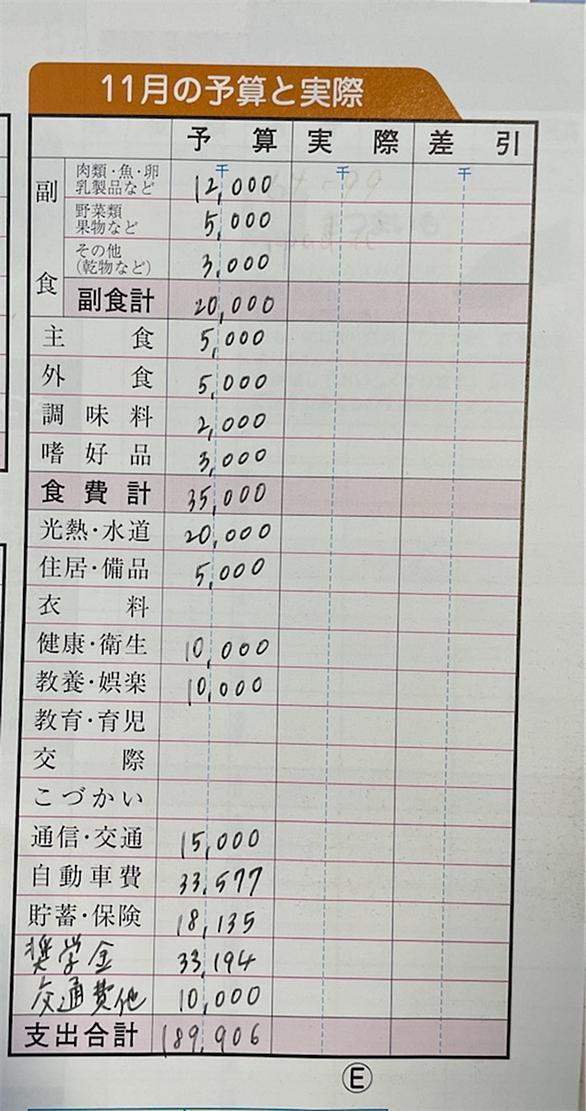 11月の予算と実際
予算 実際 差引
千 千 千
副食 肉類・魚・卵
乳製品など 12,000
野菜類
果物など 5,000
その他
(乾物など) 3,000
副食計 20,000
主食 5,000
外食 5,000
調味料 2,000
嗜好品 3,000
食費計 35,000
光熱・水道 20,000
住居・備品 5,000
衣料
健康・衛生 10,000
教養・娯楽 10,000
教育・育児
交際
こづかい
通信・交通 15,000
自動車費 33,577
貯蓄・保険 18,135
奨学金 33,194
交通費他 10,000
支出合計 189,906
E